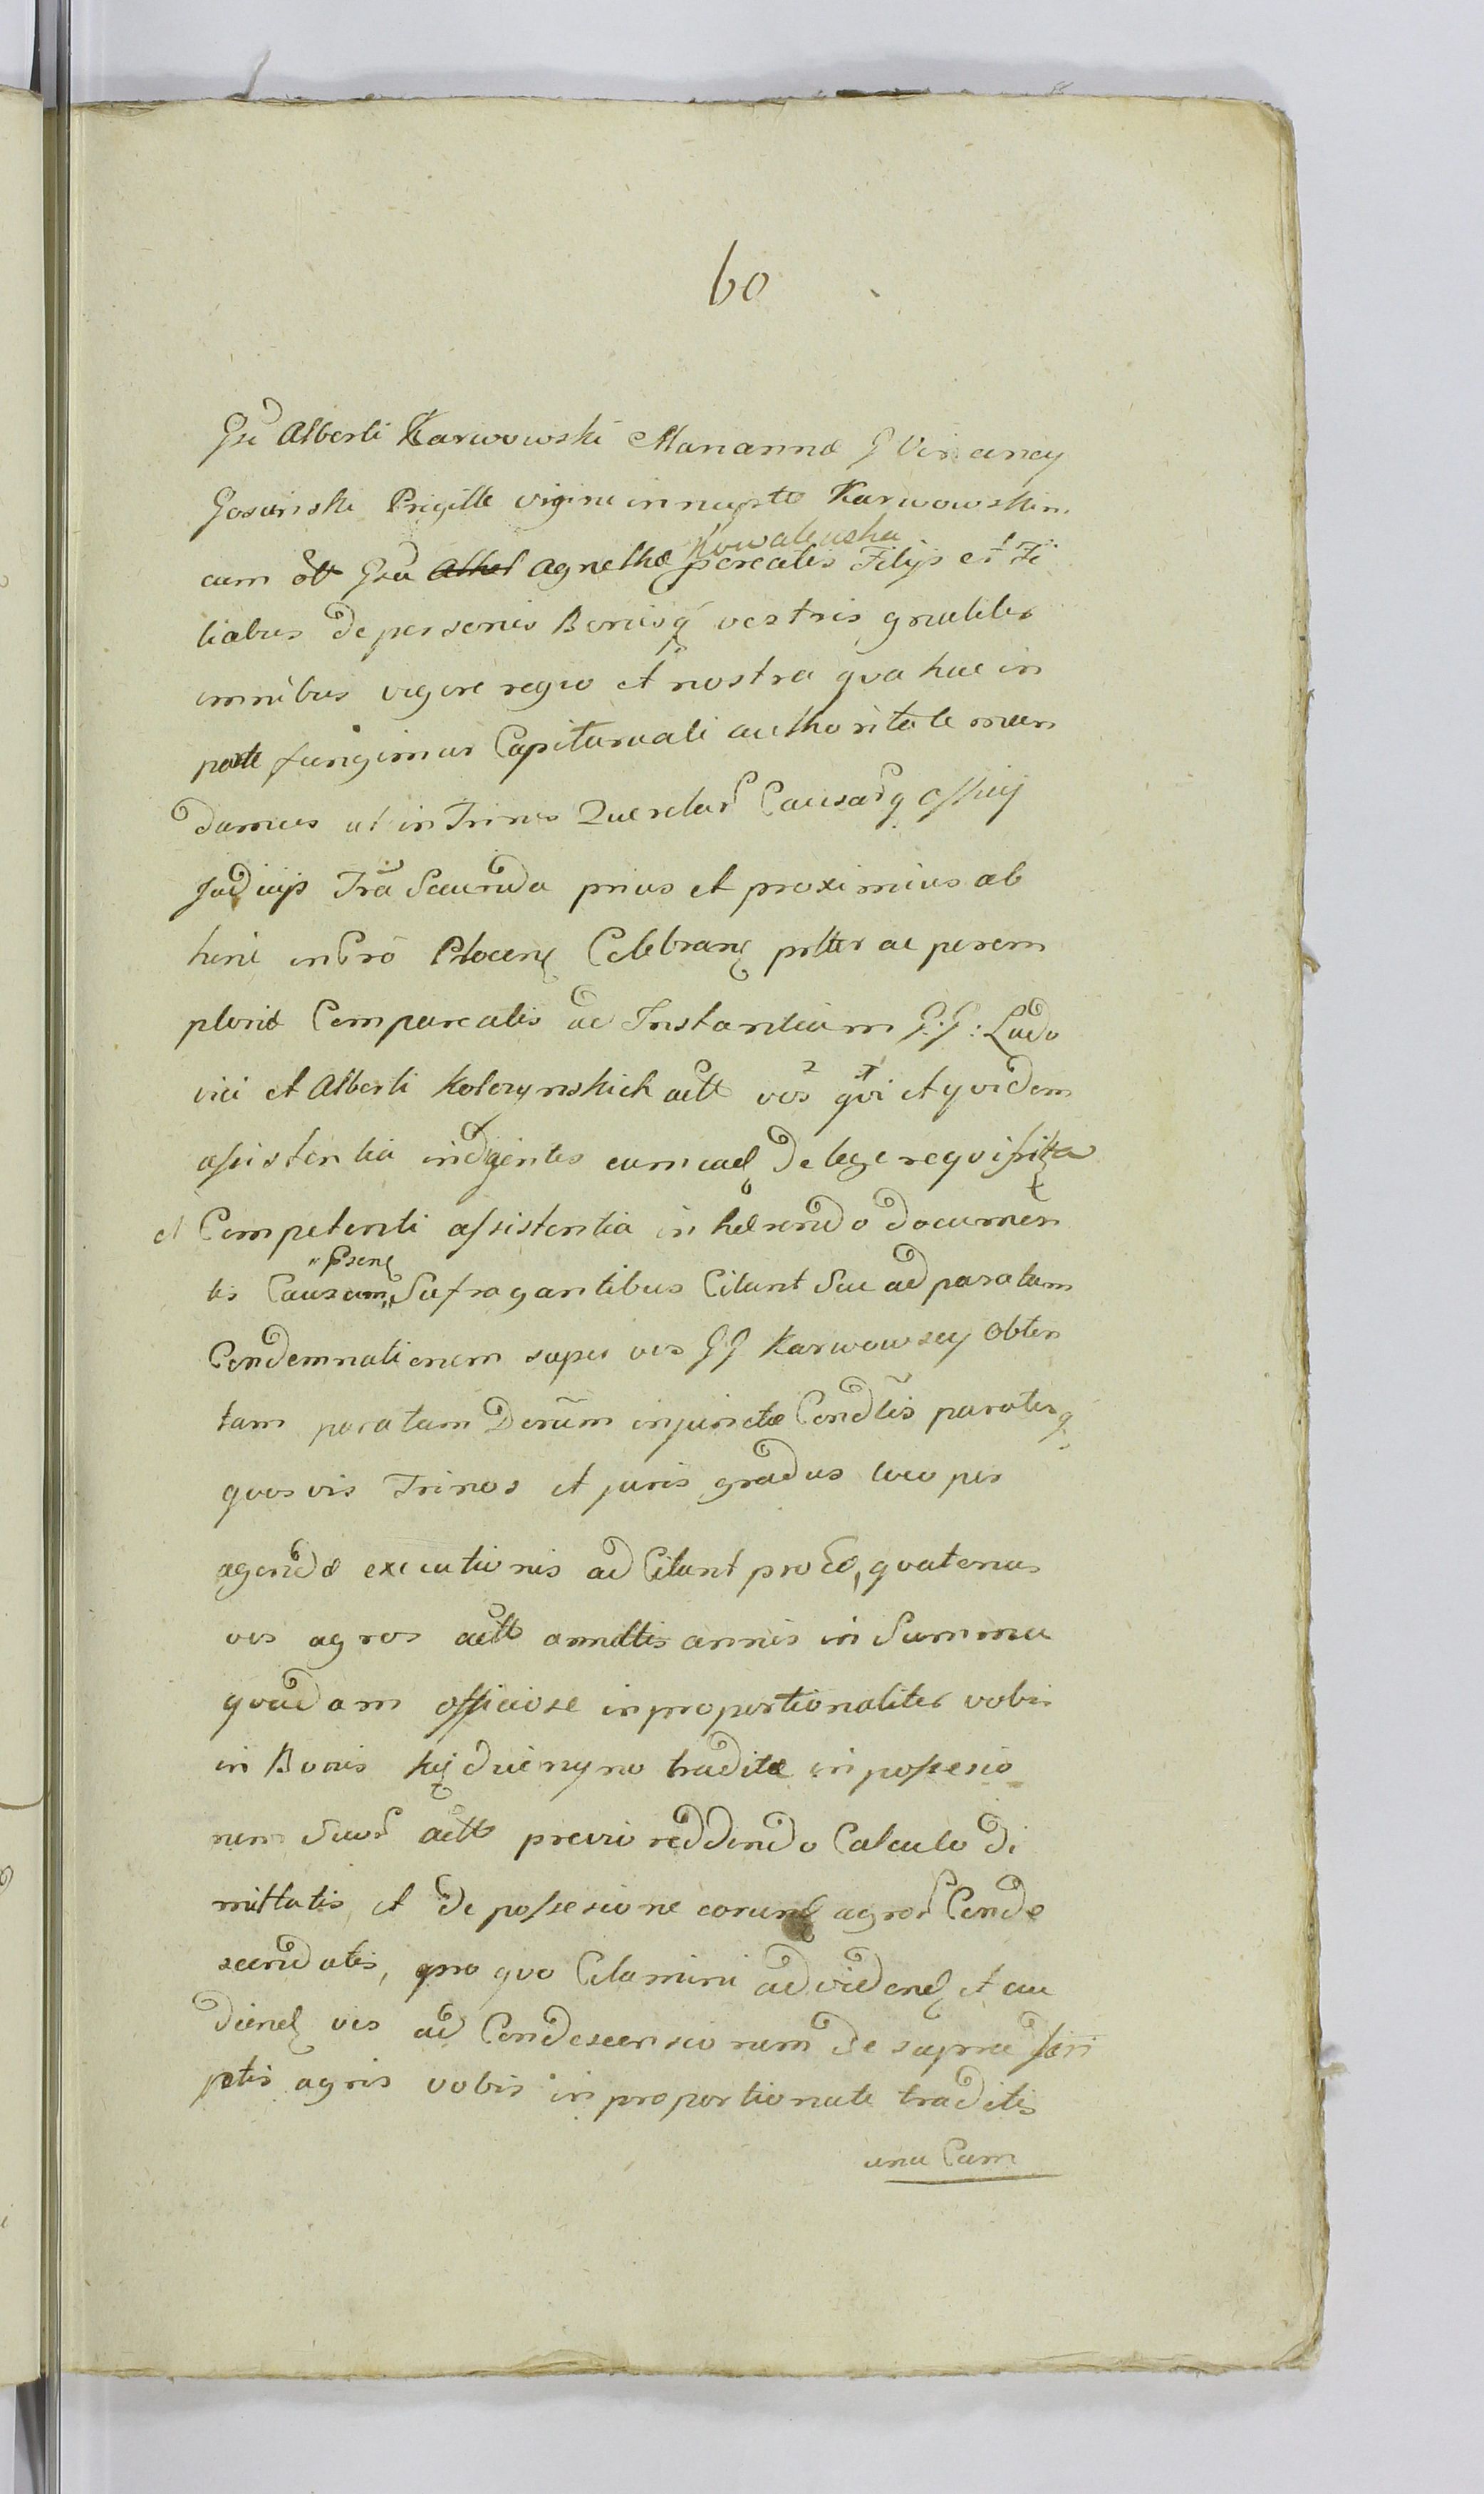 60
Gsi Alberti Karwowski Mariannæ G Vincency
Gosinski Prigille virgini innuptæ Karwowskim
Kowalewska
cum olt Gsa Agnethæ pcreatis Filijs et Fi
liabus de personis Bonisq vestris gnaliter
omnibus vigore regio et nostra qva hac in
parte fungimur Capituruali authoritate man
damus ut in Trinis Querelar Causarq Officij
Judicijs Tra Secunda prius et proximius ab
hinc in Cro Plocen Celebran pltter ac perem
ptorie Compareatis ad Instantiam G:G: Ludo
vici et Alberti Kolczynskich actt vos qvi et qvidem
assistentia indigentes cum ead de lege reqvisita
et Competenti assistentia in hærendo documen
psen
tis Causam Sufragantibus Citant Suc ad paratam
Condemnationem super vos GG Karwowscy obten
tam paratam Derum injunctæ Condtis paratisq
qvosvis Trinos et juris gradus loco per
agendæ executionis ad Citant pro eo, qvatenus
vos agros actt a multis annis in Summa
qvadam officiose inproportionaliter vobis
in Bonis traditæ in possesio
nem Suor actt previo reddendo Calculo di
mittatis et de possesione eorund agror Conde
scendatis, pro qvo Citamini ad viden et au
dien vos ad Condescensionem de supra scri
ptis agris vobis inproportionate traditis
una Cum